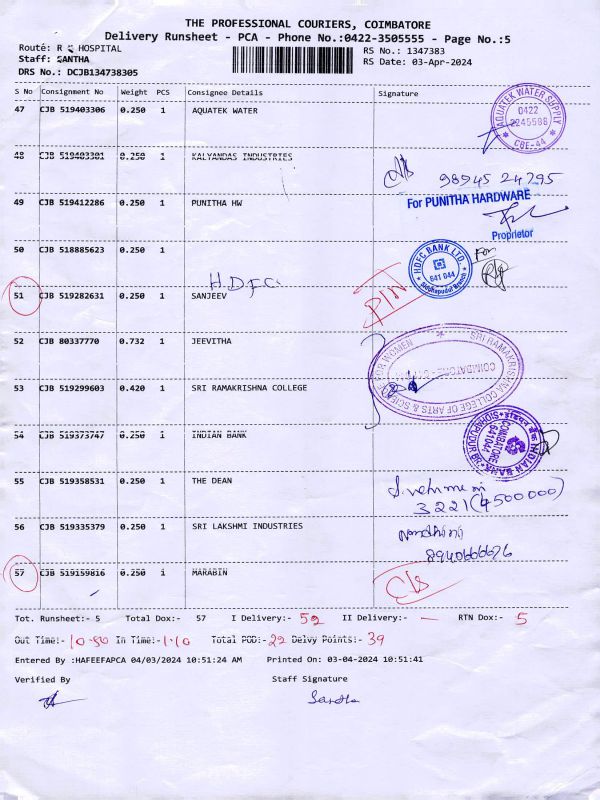 THE PROFESSIONAL COURIERS, COIMBATORE
Delivery Runsheet - PCA - Phone No.:0422-3505555 - Page No.:5
Route: R K HOSPITAL
RS No.: 1347383
Staff: SANTHA
RS Date: 03-Apr-2024
DRS No.: DCJB134738305
S No Consignment No Weight PCS Consignee Details Signature
47 CJB 519403306 0.250 1 AQUATEK WATER
AQUATEK WATER SUPPLY 0422 2245588 CBE-44
48 CJB 519403301 0.250 1 KALYANDAS INDUSTRIES
98945 24795
49 CJB 519412286 0.250 1 PUNITHA HW
For PUNITHA HARDWARE
Proprietor
50 CJB 518885623 0.250 1
H.D.F.C.
HDFC BANK LTD. 641 044 Siddhapudur Branch
For
51 CJB 519282631 0.250 1 SANJEEV
52 CJB 80337770 0.732 1 JEEVITHA
53 CJB 519299603 0.420 1 SRI RAMAKRISHNA COLLEGE
SRI RAMAKRISHNA COLLEGE OF ARTS & SCIENCE FOR WOMEN
COIMBATORE
54 CJB 519373747 0.250 1 INDIAN BANK
INDIAN BANK SIDHAPUDUR BR. COIMBATORE 641044
55 CJB 519358531 0.250 1 THE DEAN
3221 (4500000)
56 CJB 519335379 0.250 1 SRI LAKSHMI INDUSTRIES
Nandhini
8940666676
57 CJB 519159816 0.250 1 MARABIN
Tot. Runsheet:- 5 Total Dox:- 57 I Delivery:- 52 II Delivery:- — RTN Dox:- 5
Out Time:- 10.50 In Time:- 1.10 Total POD:- 22 Delvy Points:- 39
Entered By :HAFEEFAPCA 04/03/2024 10:51:24 AM Printed On: 03-04-2024 10:51:41
Verified By Staff Signature
Santha